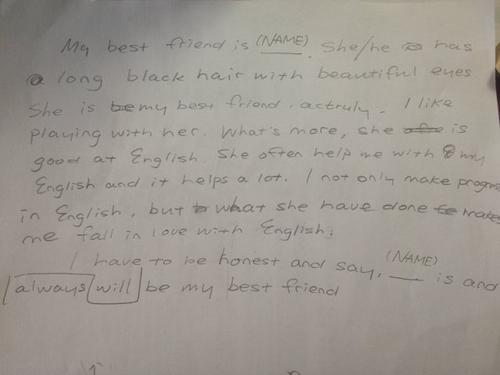 My best friend is (NAME). She/he has
a long black hair with beautiful eyes
She is my best friend, actruly. I like
playing with her. What's more, she is
good at English. She often help me with my
English and it helps a lot. I not only make progress
in English, but what she have done makes
me fall in love with English.
I have to be honest and say, (NAME) is and
always will be my best friend